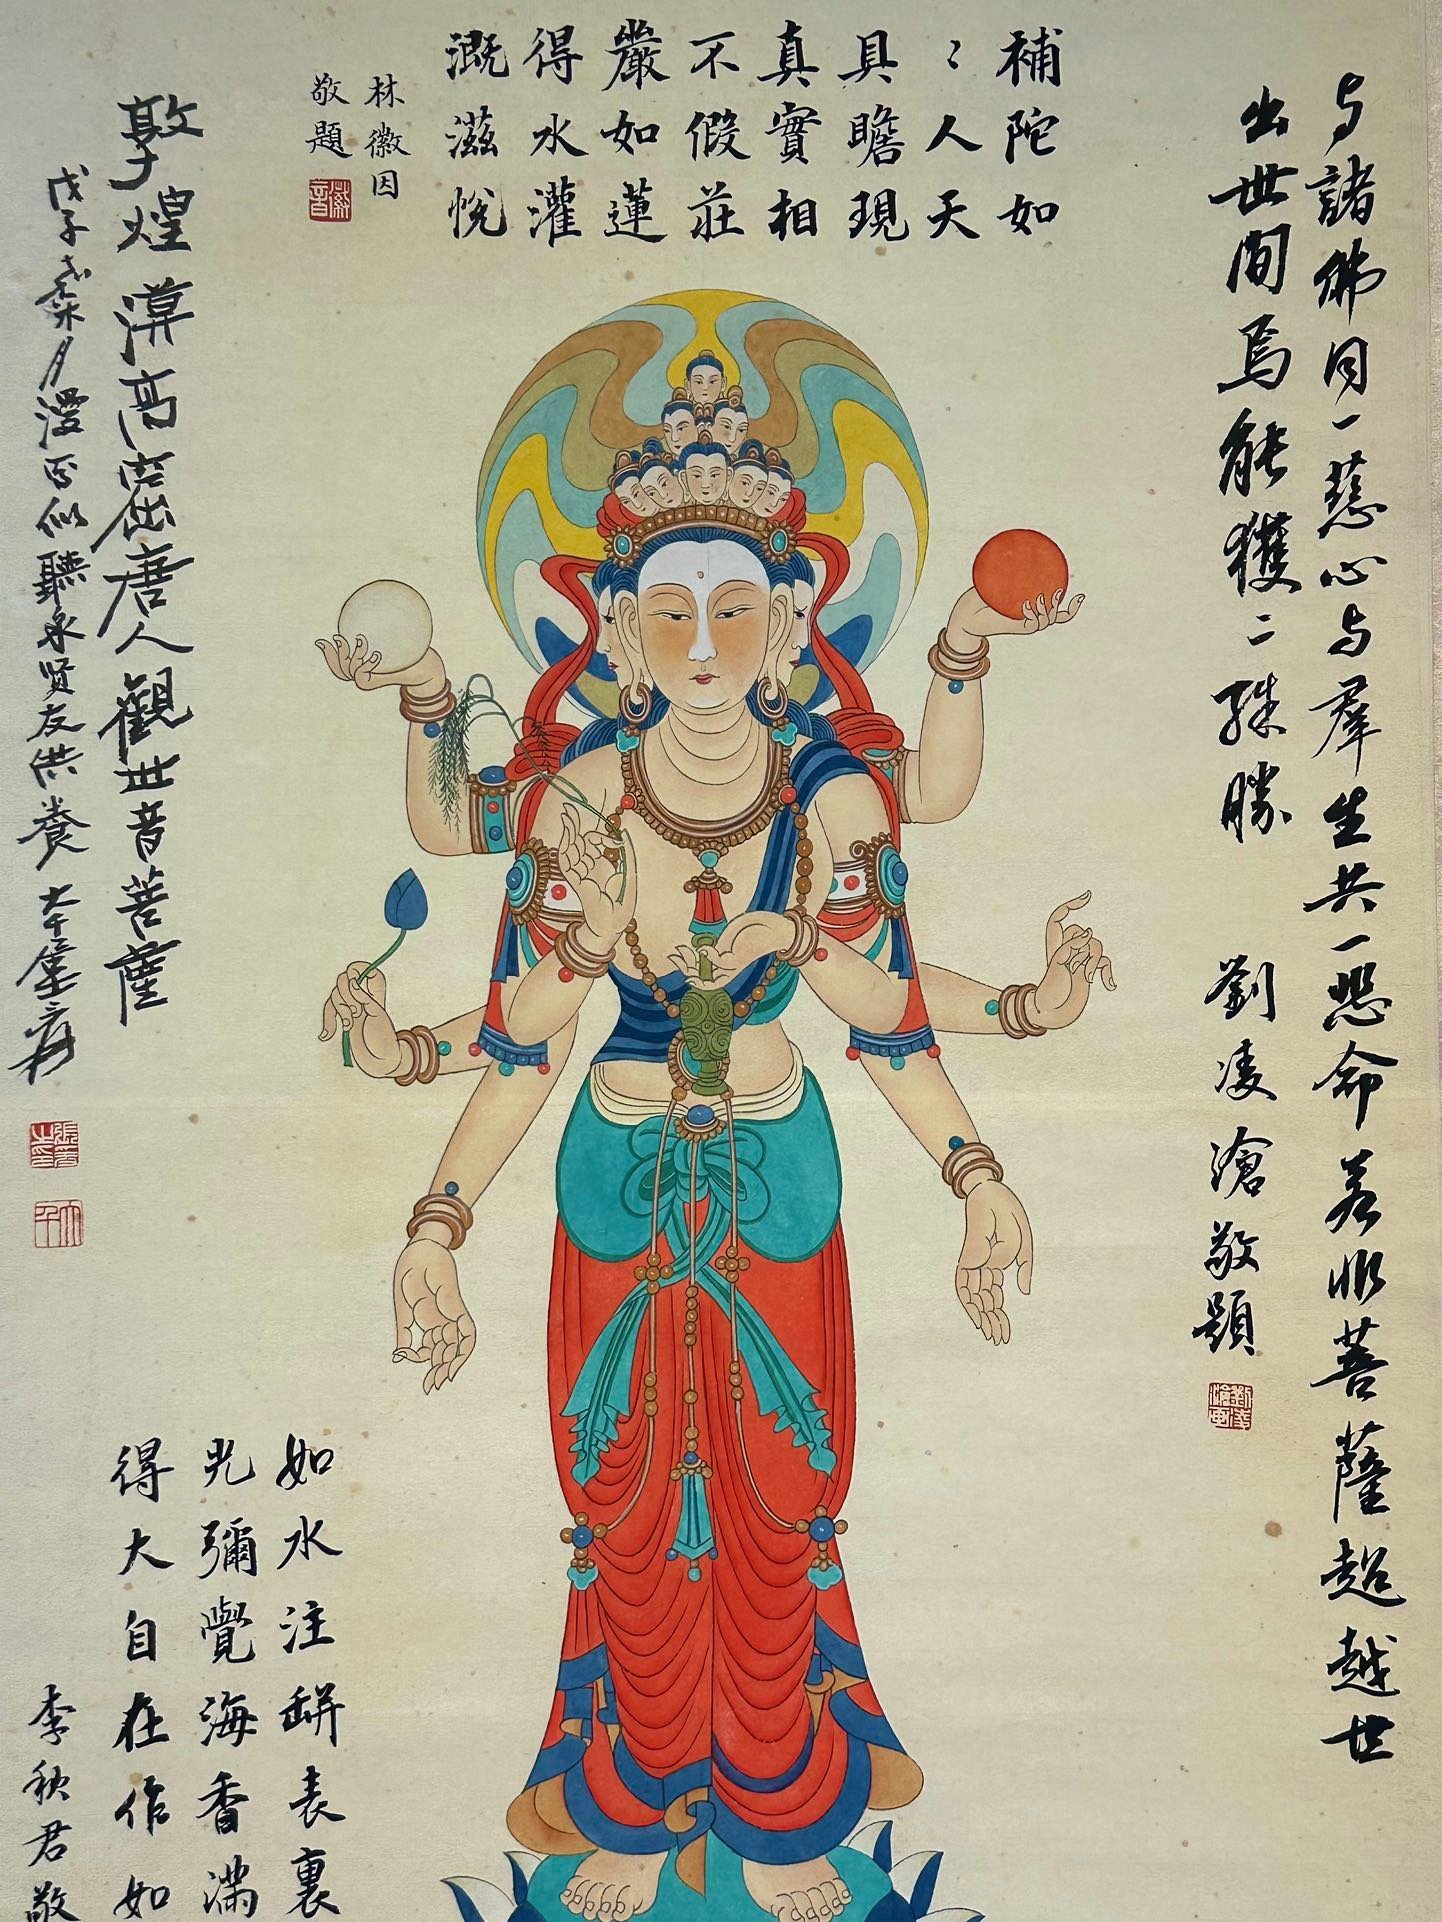 与諸佛同一慈心与羣生共一悲命若非菩薩超越世
出世間焉能獲二殊勝
劉凌滄敬題
補陀如
〻人天
具瞻現
真實相
不假莊
嚴如蓮
得水灌
溉滋悅
林徽因
敬題
徽音
敦煌漠高窟唐人觀世音菩薩
戊子 月漫 似聽永賢友供養 大千張爰
張爰之印
大千
如水注缾表裏
光彌覺海香滿
得大自在作如
李秋君敬